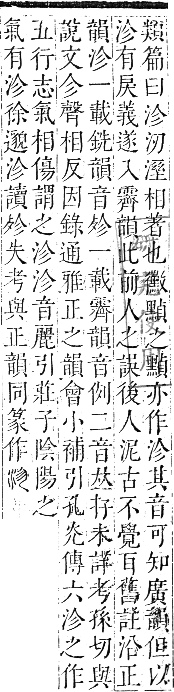 類篇曰沴沕溼相著也黴黕之黕亦作沴其音可知廣韻但以
沴有戾義遂入霽韻此前人之誤後人泥古不覺百舊註沿正
韻沴一載銑韻音紾一載霽韻音例二音𠀤存未詳考孫切與
說文㐱聲相反因錄通雅正之韻會小補引孔光傳六沴之作
五行志氣相傷謂之沴沴音麗引莊子陰陽之
氣有沴徐邈沴讀紾失考與正韻同篆作